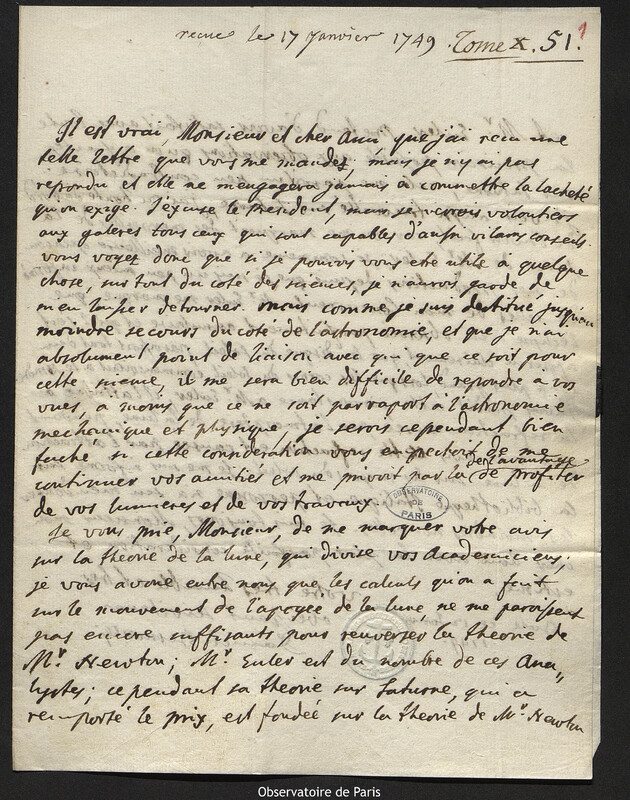 recue le 17 Janvier 1749 Tome X. 51. 1
Il est vrai, Monsieur et cher Ami, que j'ai recu une
telle lettre que vous me mandez; mais je n'y ai pas
repondu et elle ne m'engagera jamais à commettre la lacheté
qu'on exige. J'excuse le president, mais je verrois volontiers
aux galeres tous ceux qui sont capables d'aussi vilains conseils.
vous voyez donc que si je pouvois vous etre utile à quelque
chose, sur tout du coté des sciences, je n'aurois garde de
m'en laisser detourner. mais comme je suis destitué jusqu'au
moindre secours du coté de l'astronomie, et que je n'ai
absolument point de liaison avec qui que ce soit pour
cette science, il me sera bien difficile de repondre à vos
vues, à moins que ce ne soit par raport à l'astronomie
mechanique et physique; je serois cependant bien
faché si cette consideration vous empechoit de me
continuer vos amitiés et me privoit par la de l'avantage de profiter
de vos lumieres et de vos travaux.
OBSERVATOIRE DE PARIS
Je vous prie, Monsieur, de me marquer votre avis
sur la theorie de la lune, qui divise vos Academiciens;
je vous avoue entre nous que les calculs qu'on a fait
sur le mouvement de l'apogee de la lune ne me paroissent
pas encore suffisants pour renverser la theorie de
Mr. Newton; Mr. Euler est du nombre de ces Ana,,
lystes; cependant sa theorie sur Saturne, qui a
remporté le prix, est fondée sur la theorie de Mr. Newton
Observatoire de Paris